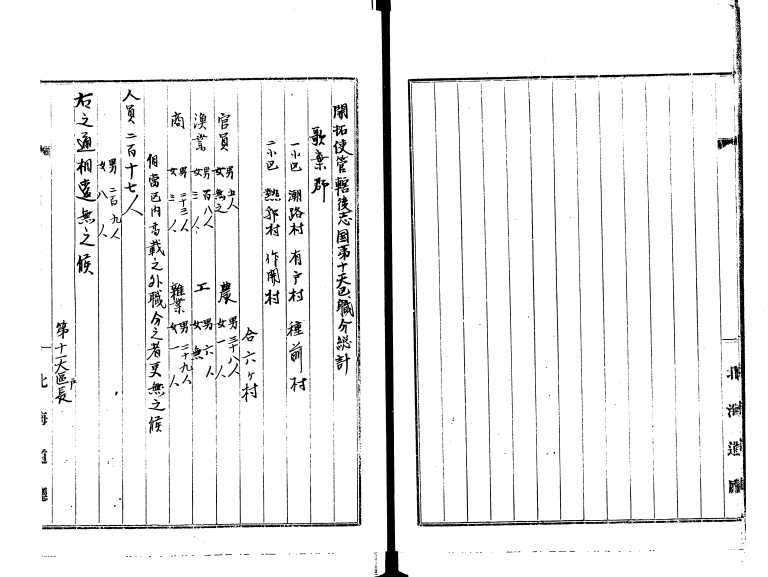 開拓使管轄後志国第十大区職分総計
歌棄郡
一小区 潮路村 有戸村 種前村
二小区 熱郛村 作開村
合六ヶ村
官員 男五人 女無之 農 男三十八人 女一人
漁業 男百八人 女三人 工 男六人 女無
商 男二十三人 女三人 雑業 男二十九人 女一人
但当区内各載之外職分之者更無之候
人員二百十七人
男二百九人
女八人
右之通相違無之候
第十一大区戸長
北海道
北海道